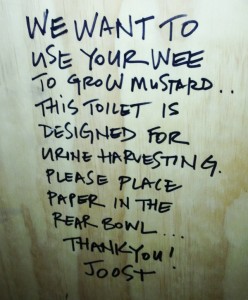 WE WANT TO
USE YOUR WEE
TO GROW MUSTARD..
THIS TOILET IS
DESIGNED FOR
URINE HARVESTING.
PLEASE PLACE
PAPER IN THE
REAR BOWL...
THANKYOU!
JOOST